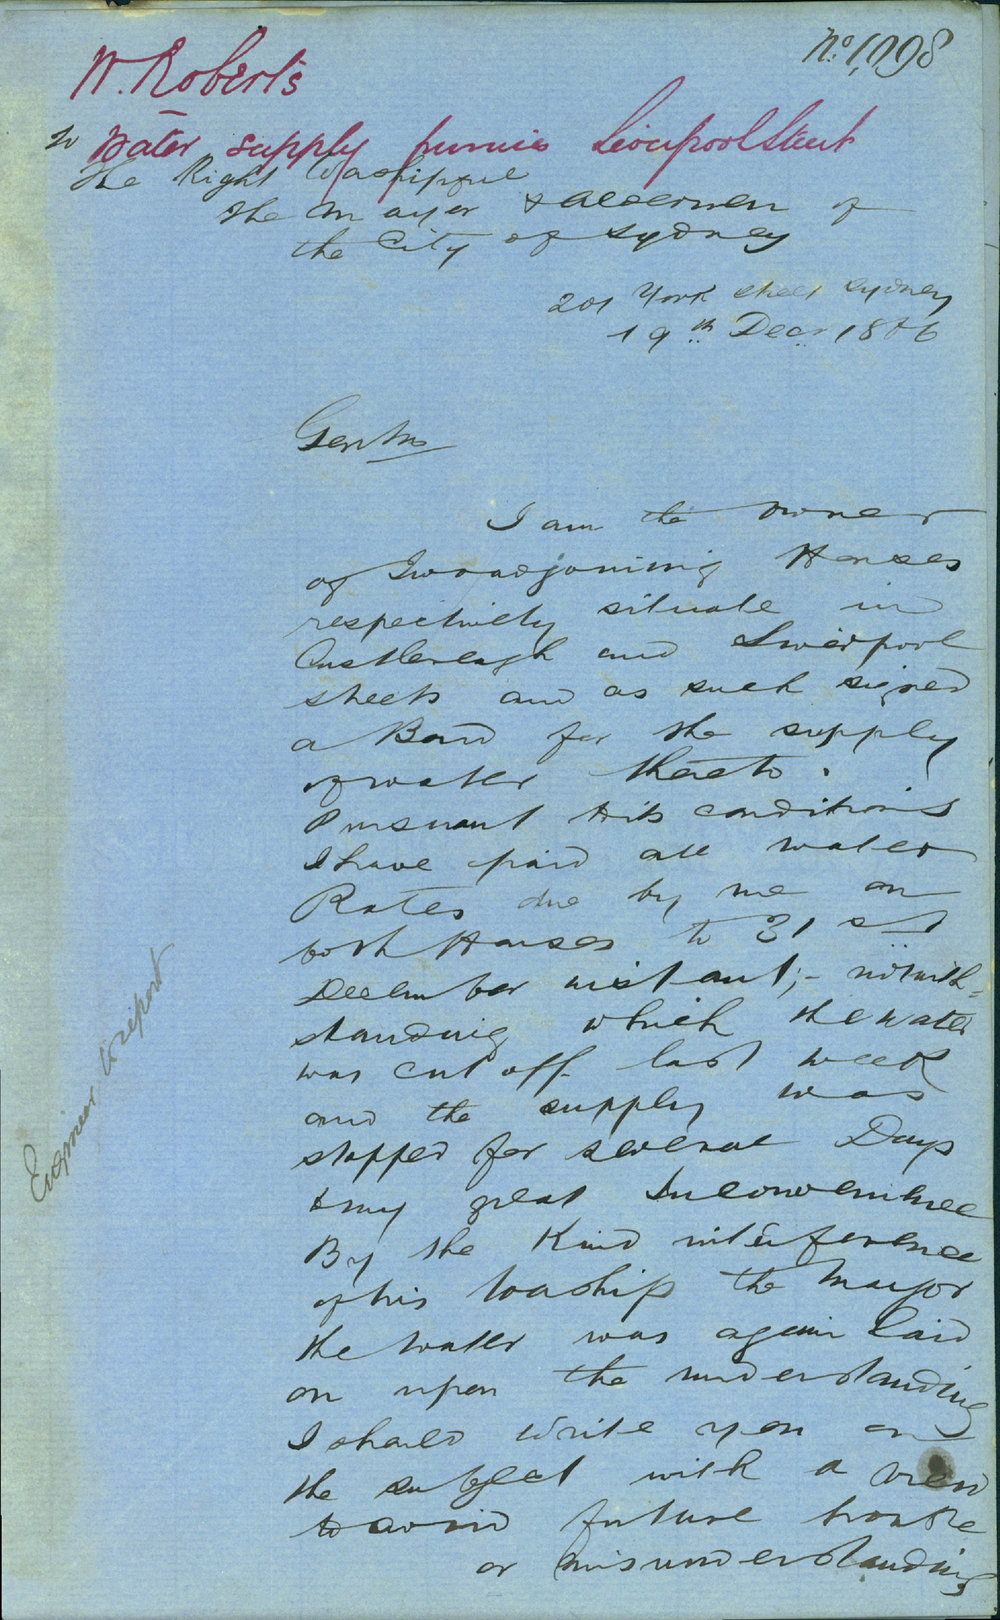 No. 1,098
W. Roberts
to Water supply premises Liverpool Street
The Right Worshipful
The Mayor & Aldermen of
the City of Sydney
201 York Street Sydney
19th Decr. 1876
Gentn
I am the owner
of Two adjoining Houses
respectively situate in
Castlereagh and Liverpool
streets and as such signed
a Bond for the supply
of water thereto.
Pursuant to its conditions
I have paid all water
Rates due by me on
both Houses to 31st
December instant; - notwith=
standing which the water
was cut off last week
and the supply was
stopped for several Days
to my great Inconvenience
By the Kind interference
of his Worship the Mayor
the water was again laid
on upon the understanding
I should write you on
the subject with a view
to avoid future trouble
or misunderstanding
Engineer to report